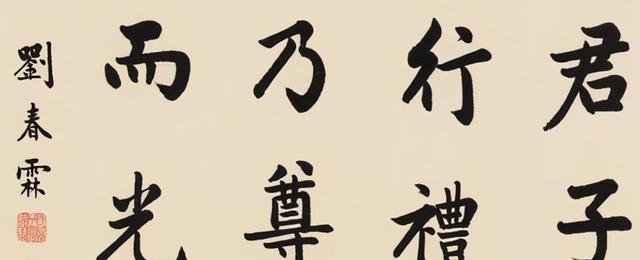 君子
行禮
乃尊
而光
劉春霖